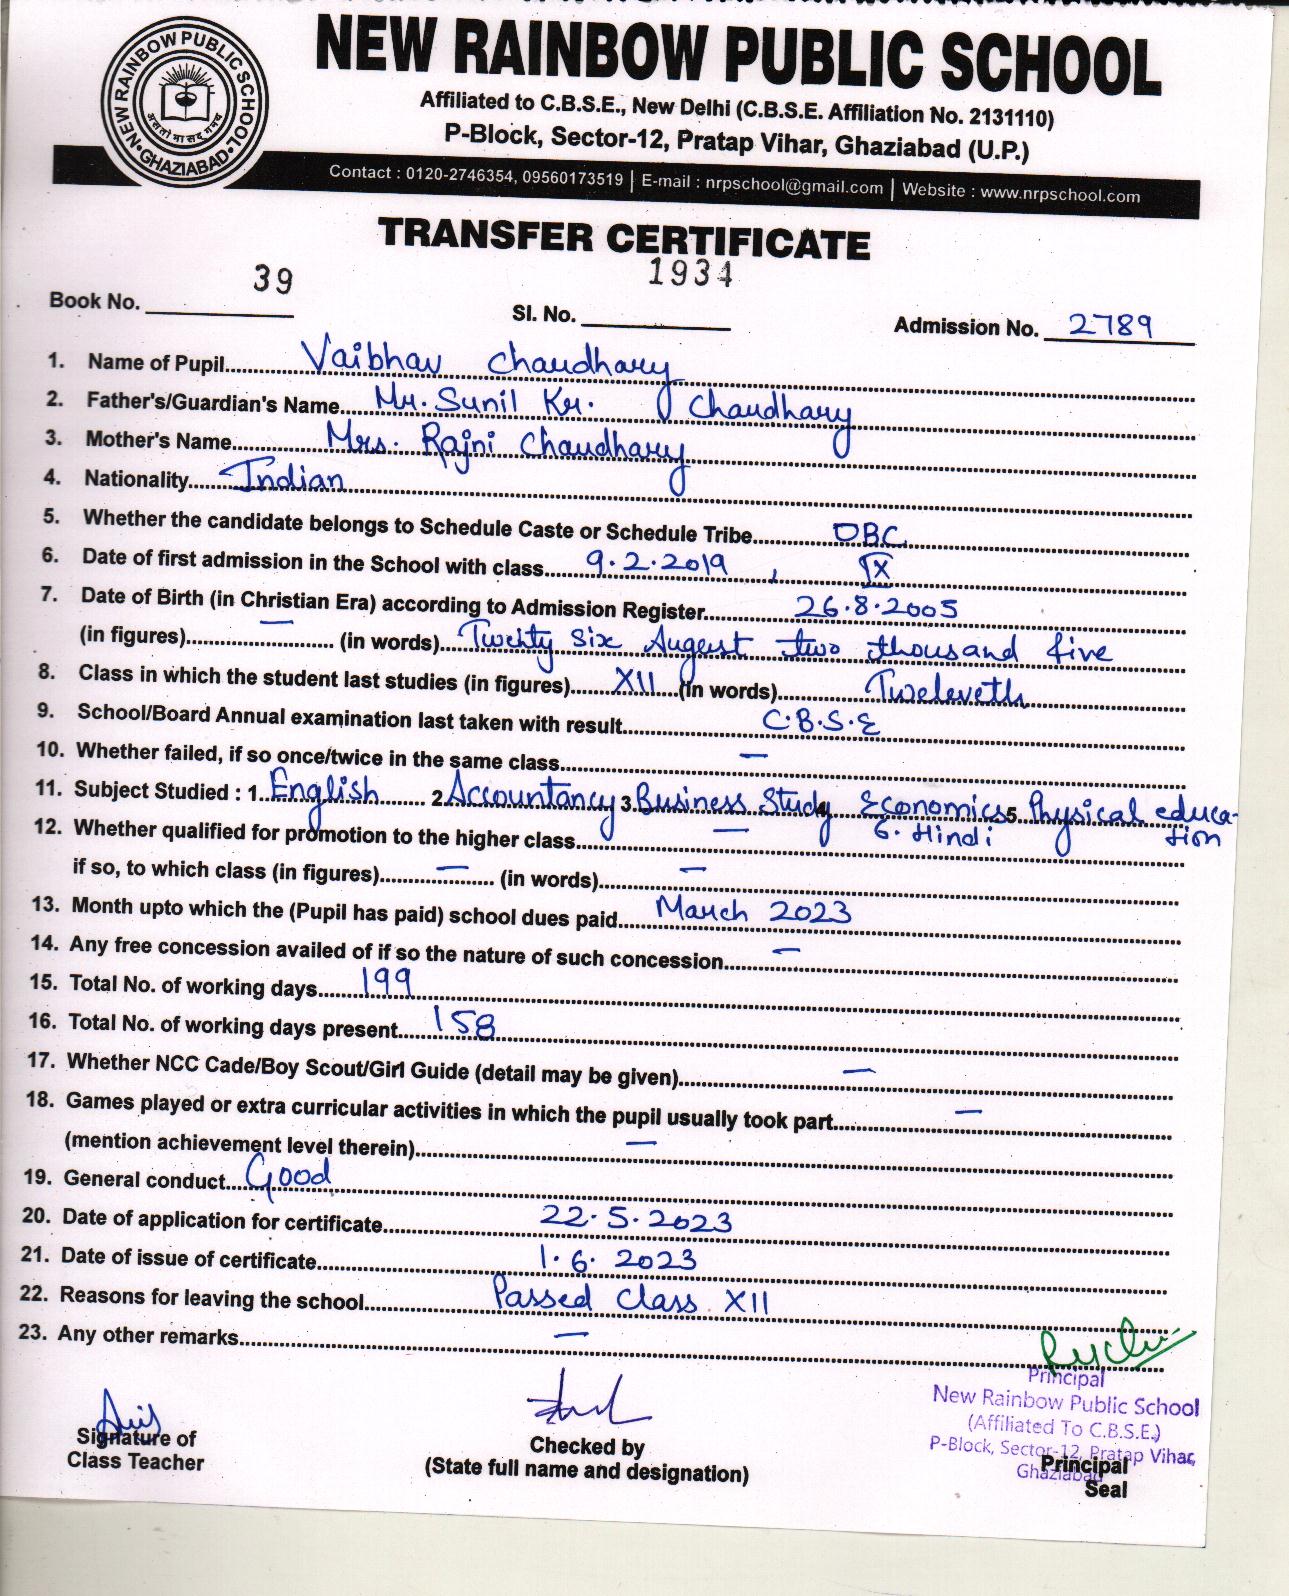 NEW RAINBOW PUBLIC SCHOOL
NEW RAINBOW PUBLIC SCHOOL
GHAZIABAD
असतो मा सद गमय
Affiliated to C.B.S.E., New Delhi (C.B.S.E. Affiliation No. 2131110)
P-Block, Sector-12, Pratap Vihar, Ghaziabad (U.P.)
Contact : 0120-2746354, 09560173519 | E-mail : nrpschool@gmail.com | Website : www.nrpschool.com
TRANSFER CERTIFICATE
Book No. 39 Sl. No. 1934 Admission No. 2789
1. Name of Pupil Vaibhav Chaudhary
2. Father's/Guardian's Name Mr. Sunil Kr. Chaudhary
3. Mother's Name Mrs. Rajni Chaudhary
4. Nationality Indian
5. Whether the candidate belongs to Schedule Caste or Schedule Tribe OBC
6. Date of first admission in the School with class 9.2.2019 , IX
7. Date of Birth (in Christian Era) according to Admission Register 26.8.2005
(in figures) — (in words) Twenty Six August two thousand five
8. Class in which the student last studies (in figures) XII (in words) Tweleveth
9. School/Board Annual examination last taken with result C.B.S.E
10. Whether failed, if so once/twice in the same class —
11. Subject Studied : 1. English 2 Accountancy 3 Business Study 4 Economics 5 Physical educa-
6. Hindi tion
12. Whether qualified for promotion to the higher class —
if so, to which class (in figures) — (in words) —
13. Month upto which the (Pupil has paid) school dues paid March 2023
14. Any free concession availed of if so the nature of such concession —
15. Total No. of working days 199
16. Total No. of working days present 158
17. Whether NCC Cade/Boy Scout/Girl Guide (detail may be given) —
18. Games played or extra curricular activities in which the pupil usually took part —
(mention achievement level therein) —
19. General conduct Good
20. Date of application for certificate 22.5.2023
21. Date of issue of certificate 1.6.2023
22. Reasons for leaving the school Passed Class XII
23. Any other remarks —
Principal
New Rainbow Public School
(Affiliated To C.B.S.E.)
P-Block, Sector-12, Pratap Vihar,
Ghaziabad
Signature of
Class Teacher
Checked by
(State full name and designation)
Principal
Seal